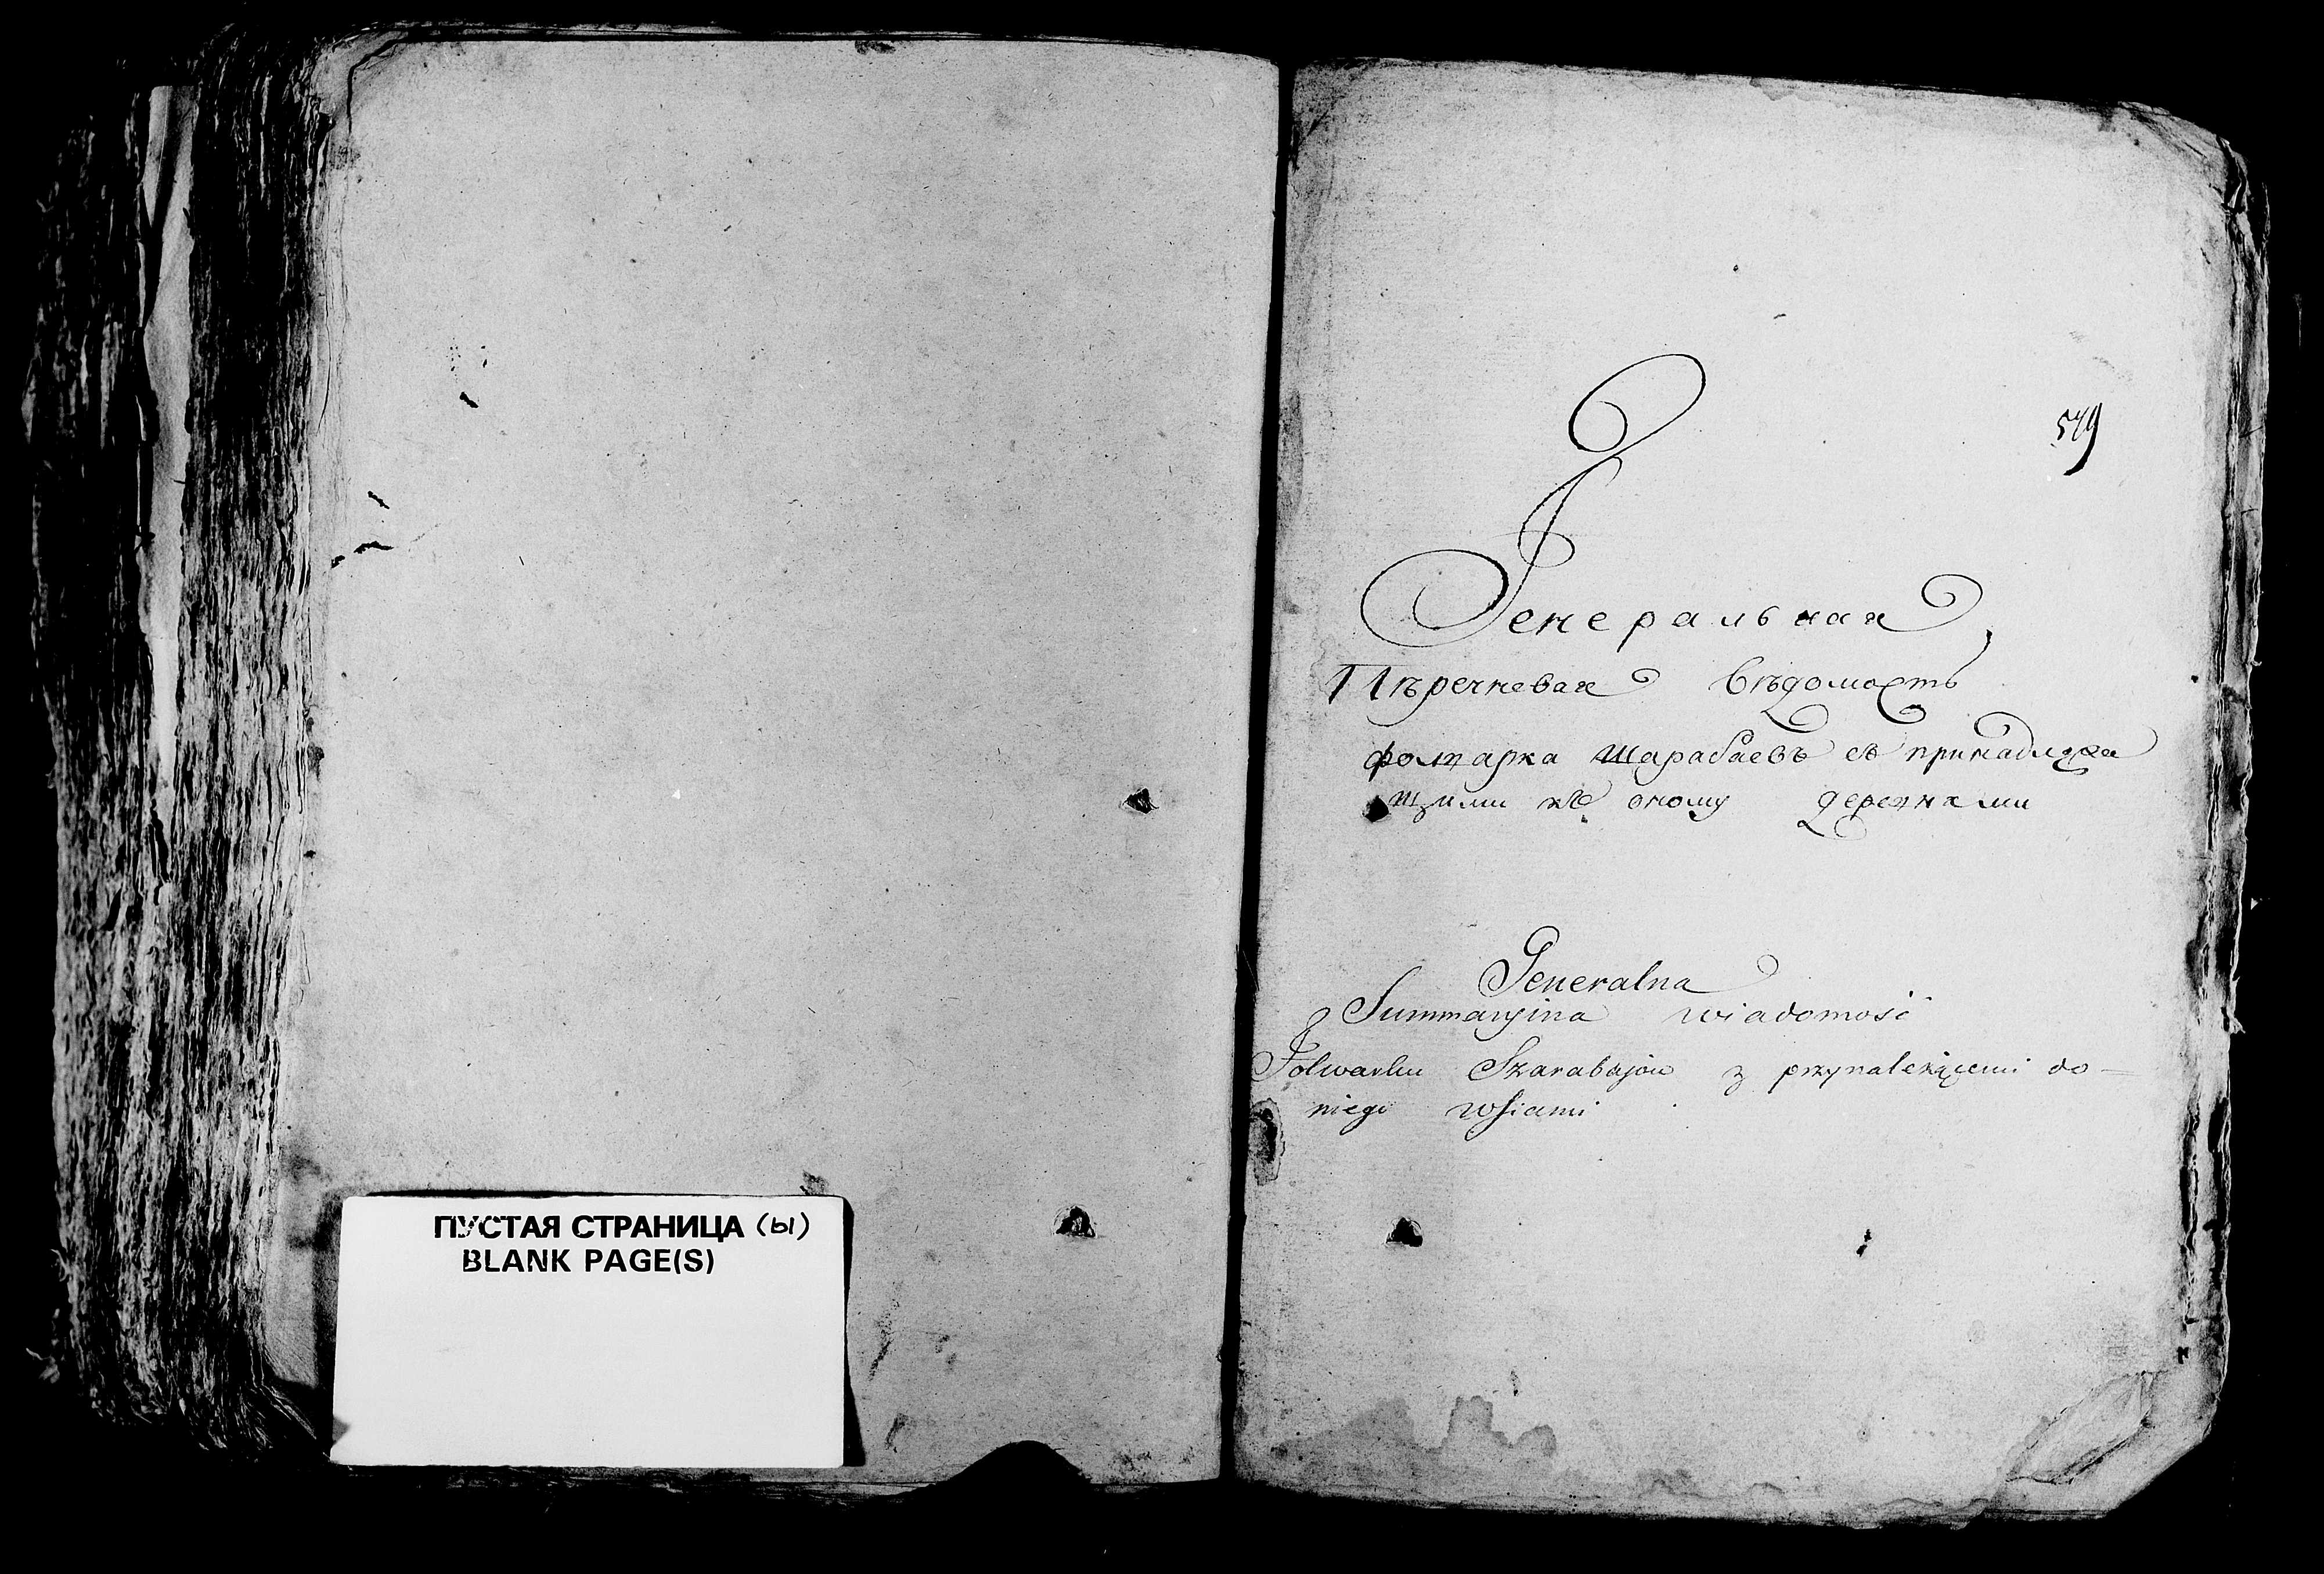 ПУСТАЯ СТРАНИЦА (ы)
BLANK PAGE(S)
519
Генеральная
Пѣречневая Вѣдомость
фолварка Шарабаевъ съ принадлежа
щими къ оному деревнями
Generalna
Summaryina wiadomość
Folwarku Szarabajow z przynależącemi do=
niego wsiami